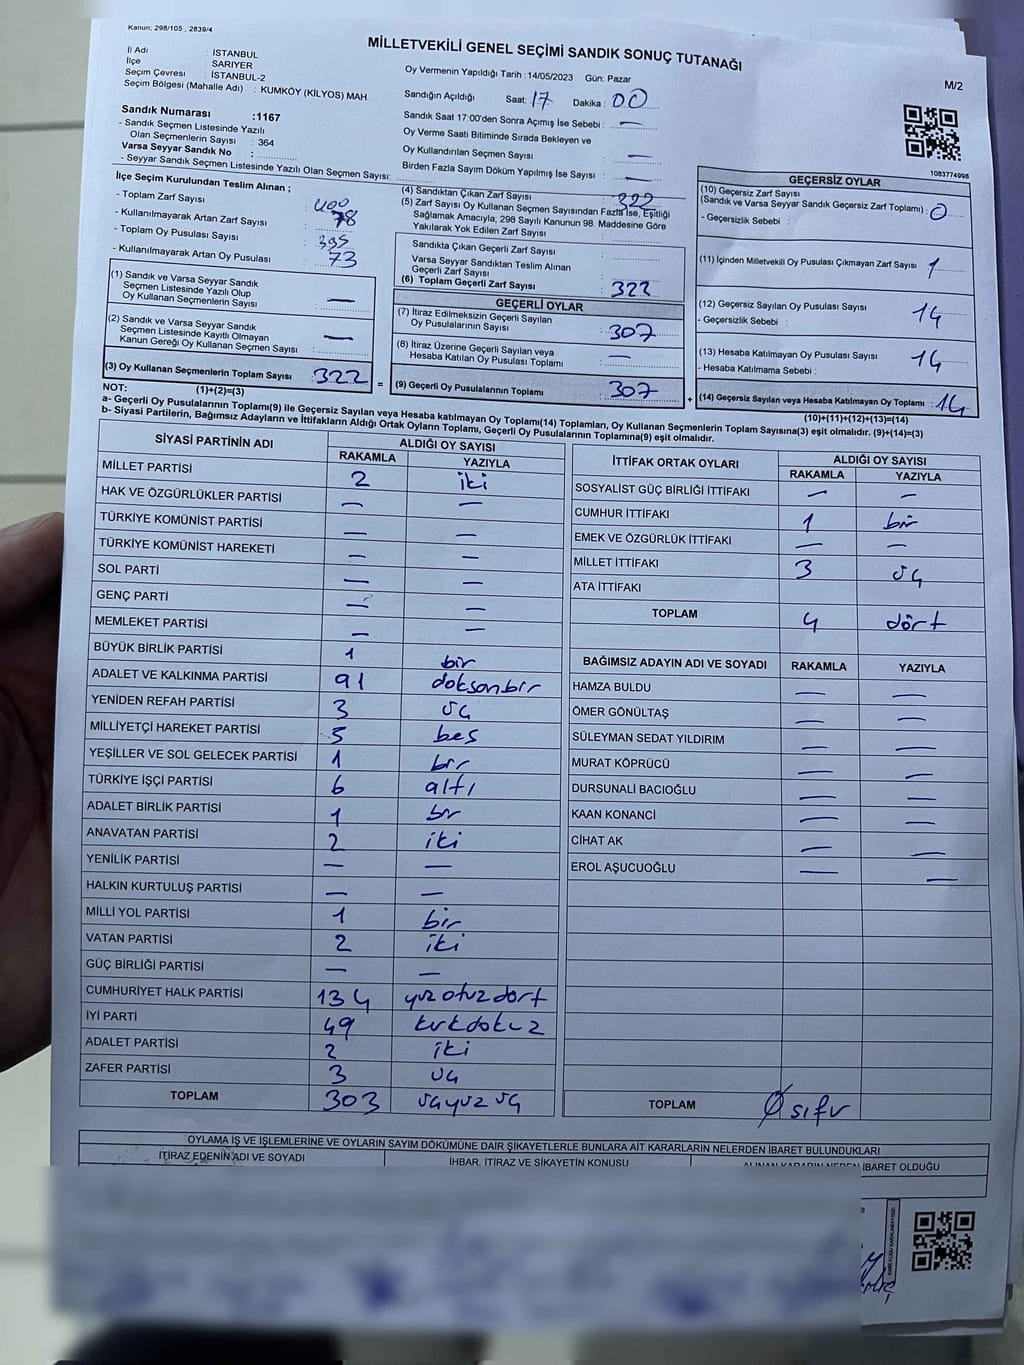 Kanun; 298/105 , 2839/4
MİLLETVEKİLİ GENEL SEÇİMİ SANDIK SONUÇ TUTANAĞI
M/2
İl Adı : İSTANBUL
İlçe : SARIYER
Seçim Çevresi : İSTANBUL-2
Seçim Bölgesi (Mahalle Adı) : KUMKÖY (KİLYOS) MAH.
Sandık Numarası :1167
- Sandık Seçmen Listesinde Yazılı
Olan Seçmenlerin Sayısı : 364
Varsa Seyyar Sandık No :
- Seyyar Sandık Seçmen Listesinde Yazılı Olan Seçmen Sayısı:
Oy Vermenin Yapıldığı Tarih :14/05/2023 Gün: Pazar
Sandığın Açıldığı Saat: 17 Dakika : 00
Sandık Saat 17:00'den Sonra Açımış İse Sebebi : —
Oy Verme Saati Bitiminde Sırada Bekleyen ve
Oy Kullandırılan Seçmen Sayısı —
Birden Fazla Sayım Döküm Yapılmış İse Sayısı : —
1083774998
İlçe Seçim Kurulundan Teslim Alınan ;
- Toplam Zarf Sayısı : 400
- Kullanılmayarak Artan Zarf Sayısı : 78
- Toplam Oy Pusulası Sayısı : 395
- Kullanılmayarak Artan Oy Pusulası : 73
(1) Sandık ve Varsa Seyyar Sandık
Seçmen Listesinde Yazılı Olup
Oy Kullanan Seçmenlerin Sayısı : —
(2) Sandık ve Varsa Seyyar Sandık
Seçmen Listesinde Kayıtlı Olmayan
Kanun Gereği Oy Kullanan Seçmen Sayısı : —
(3) Oy Kullanan Seçmenlerin Toplam Sayısı : 322 =
(1)+(2)=(3)
(4) Sandıktan Çıkan Zarf Sayısı : 322
(5) Zarf Sayısı Oy Kullanan Seçmen Sayısından Fazla İse, Eşitliği
Sağlamak Amacıyla; 298 Sayılı Kanunun 98. Maddesine Göre
Yakılarak Yok Edilen Zarf Sayısı :
Sandıkta Çıkan Geçerli Zarf Sayısı :
Varsa Seyyar Sandıktan Teslim Alınan
Geçerli Zarf Sayısı :
(6) Toplam Geçerli Zarf Sayısı : 322
GEÇERLİ OYLAR
(7) İtiraz Edilmeksizin Geçerli Sayılan
Oy Pusulalarının Sayısı : 307
(8) İtiraz Üzerine Geçerli Sayılan veya
Hesaba Katılan Oy Pusulası Toplamı : —
(9) Geçerli Oy Pusulalarının Toplamı : 307 +
GEÇERSİZ OYLAR
(10) Geçersiz Zarf Sayısı
(Sandık ve Varsa Seyyar Sandık Geçersiz Zarf Toplamı) : 0
- Geçersizlik Sebebi :
(11) İçinden Milletvekili Oy Pusulası Çıkmayan Zarf Sayısı : 1
(12) Geçersiz Sayılan Oy Pusulası Sayısı : 14
- Geçersizlik Sebebi :
(13) Hesaba Katılmayan Oy Pusulası Sayısı : 14
- Hesaba Katılmama Sebebi :
(14) Geçersiz Sayılan veya Hesaba Katılmayan Oy Toplamı : 14
(10)+(11)+(12)+(13)=(14)
NOT:
a- Geçerli Oy Pusulalarının Toplamı(9) ile Geçersiz Sayılan veya Hesaba katılmayan Oy Toplamı(14) Toplamları, Oy Kullanan Seçmenlerin Toplam Sayısına(3) eşit olmalıdır. (9)+(14)=(3)
b- Siyasi Partilerin, Bağımsız Adayların ve İttifakların Aldığı Ortak Oyların Toplamı, Geçerli Oy Pusulalarının Toplamına(9) eşit olmalıdır.
SİYASİ PARTİNİN ADI ALDIĞI OY SAYISI
RAKAMLA YAZIYLA
MİLLET PARTİSİ 2 iki
HAK VE ÖZGÜRLÜKLER PARTİSİ — —
TÜRKİYE KOMÜNİST PARTİSİ — —
TÜRKİYE KOMÜNİST HAREKETİ — —
SOL PARTİ — —
GENÇ PARTİ — —
MEMLEKET PARTİSİ — —
BÜYÜK BİRLİK PARTİSİ 1 bir
ADALET VE KALKINMA PARTİSİ 91 doksanbir
YENİDEN REFAH PARTİSİ 3 üç
MİLLİYETÇİ HAREKET PARTİSİ 5 beş
YEŞİLLER VE SOL GELECEK PARTİSİ 1 bir
TÜRKİYE İŞÇİ PARTİSİ 6 altı
ADALET BİRLİK PARTİSİ 1 bir
ANAVATAN PARTİSİ 2 iki
YENİLİK PARTİSİ — —
HALKIN KURTULUŞ PARTİSİ — —
MİLLİ YOL PARTİSİ 1 bir
VATAN PARTİSİ 2 iki
GÜÇ BİRLİĞİ PARTİSİ — —
CUMHURİYET HALK PARTİSİ 134 yüz otuz dört
İYİ PARTİ 49 kırkdokuz
ADALET PARTİSİ 2 iki
ZAFER PARTİSİ 3 üç
TOPLAM 303 üçyüz üç
İTTİFAK ORTAK OYLARI ALDIĞI OY SAYISI
RAKAMLA YAZIYLA
SOSYALİST GÜÇ BİRLİĞİ İTTİFAKI — —
CUMHUR İTTİFAKI 1 bir
EMEK VE ÖZGÜRLÜK İTTİFAKI — —
MİLLET İTTİFAKI 3 üç
ATA İTTİFAKI
TOPLAM 4 dört
BAĞIMSIZ ADAYIN ADI VE SOYADI RAKAMLA YAZIYLA
HAMZA BULDU — —
ÖMER GÖNÜLTAŞ — —
SÜLEYMAN SEDAT YILDIRIM — —
MURAT KÖPRÜCÜ — —
DURSUNALİ BACIOĞLU — —
KAAN KONANCİ — —
CİHAT AK — —
EROL AŞUCUOĞLU — —
TOPLAM 0 sıfır
OYLAMA İŞ VE İŞLEMLERİNE VE OYLARIN SAYIM DÖKÜMÜNE DAİR ŞİKAYETLERLE BUNLARA AİT KARARLARIN NELERDEN İBARET BULUNDUKLARI
İTİRAZ EDENİN ADI VE SOYADI İHBAR, İTİRAZ VE ŞİKAYETİN KONUSU ALINAN KARARIN NEDEN İBARET OLDUĞU